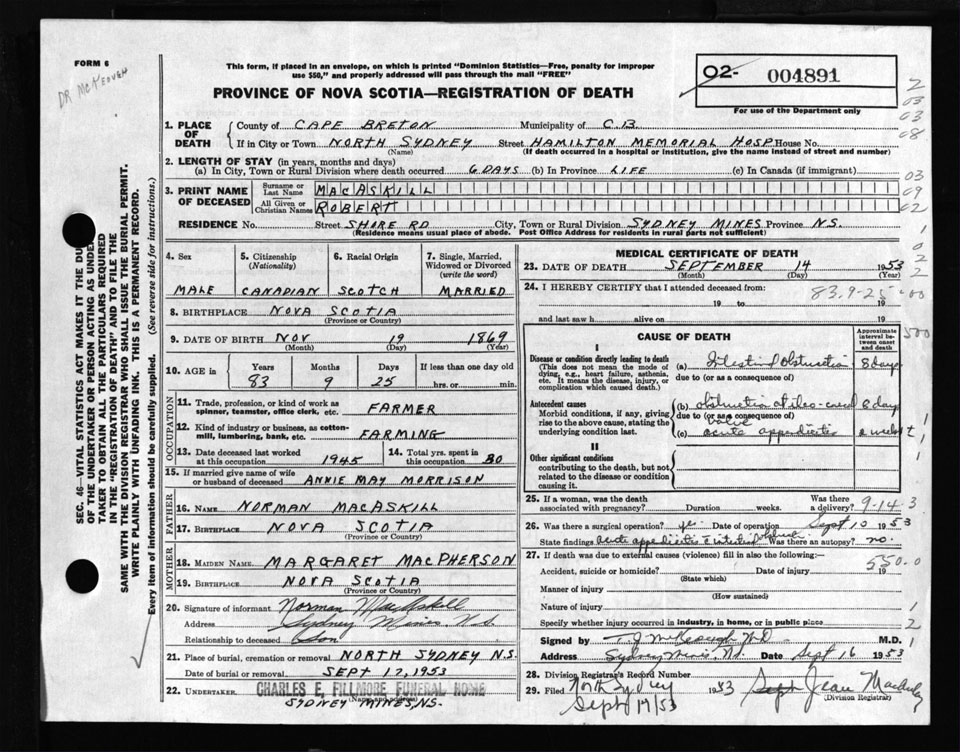 FORM 6
DR McKEOUGH
This form, if placed in an envelope, on which is printed "Dominion Statistics—Free, penalty for improper
use $50," and properly addressed will pass through the mail "FREE"
02- 004891
For use of the Department only
PROVINCE OF NOVA SCOTIA—REGISTRATION OF DEATH
1. PLACE OF DEATH
County of CAPE BRETON Municipality of C.B.
If in City or Town NORTH SYDNEY Street HAMILTON MEMORIAL HOSP. House No.
(Name) (If death occurred in a hospital or institution, give the name instead of street and number)
2. LENGTH OF STAY (in years, months and days)
(a) In City, Town or Rural Division where death occurred 6 DAYS (b) In Province LIFE (c) In Canada (if immigrant)
3. PRINT NAME OF DECEASED
Surname or Last Name MACASKILL
All Given or Christian Names ROBERT
RESIDENCE No. Street SHORE RD City, Town or Rural Division SYDNEY MINES Province N.S.
(Residence means usual place of abode. Post Office Address for residents in rural parts not sufficient)
2
03
03
08
03
09
02
1
0
2
2
SEC. 46—VITAL STATISTICS ACT MAKES IT THE DU
OF THE UNDERTAKER OR PERSON ACTING AS UNDE
TAKER TO OBTAIN ALL THE PARTICULARS REQUIRED
IN THE "REGISTRATION OF DEATH" AND TO FILE THE
SAME WITH THE DIVISION REGISTRAR WHO SHALL ISSUE THE BURIAL PERMIT.
WRITE PLAINLY WITH UNFADING INK. THIS IS A PERMANENT RECORD.
Every item of information should be carefully supplied. (See reverse side for instructions.)
4. Sex 5. Citizenship (Nationality) 6. Racial Origin 7. Single, Married, Widowed or Divorced (write the word)
MALE CANADIAN SCOTCH MARRIED
8. BIRTHPLACE NOVA SCOTIA
(Province or Country)
9. DATE OF BIRTH NOV 19 1869
(Month) (Day) (Year)
10. AGE in Years Months Days If less than one day old
83 9 25 hrs. or min.
OCCUPATION
11. Trade, profession, or kind of work as
spinner, teamster, office clerk, etc. FARMER
12. Kind of industry or business, as cotton-
mill, lumbering, bank, etc. FARMING
13. Date deceased last worked
at this occupation 1945
14. Total yrs. spent in
this occupation 30
15. If married give name of wife
or husband of deceased ANNIE MAY MORRISON
FATHER
16. NAME NORMAN MACASKILL
17. BIRTHPLACE NOVA SCOTIA
(Province or Country)
MOTHER
18. MAIDEN NAME MARGARET MACPHERSON
19. BIRTHPLACE NOVA SCOTIA
(Province or Country)
20. Signature of informant Norman MacAskill
Address Sydney Mines N.S.
Relationship to deceased Son
21. Place of burial, cremation or removal NORTH SYDNEY N.S.
Date of burial or removal SEPT 17, 1953
22. UNDERTAKER CHARLES E. FILLMORE FUNERAL HOME
(Name and Address)
SYDNEY MINES, N.S.
MEDICAL CERTIFICATE OF DEATH
23. DATE OF DEATH SEPTEMBER 14 1953
(Month) (Day) (Year)
24. I HEREBY CERTIFY that I attended deceased from: 83.9-25
19 to 19
and last saw h alive on 19
CAUSE OF DEATH
Approximate interval between onset and death
500
I
Disease or condition directly leading to death
(This does not mean the mode of
dying, e.g., heart failure, asthenia,
etc. It means the disease, injury, or
complication which caused death.)
(a) Intestinal Obstruction 8 days
due to (or as consequence of)
Antecedent causes
Morbid conditions, if any, giving
rise to the above cause, stating the
underlying condition last.
(b) obstruction at ileo-cecal 8 day
valve
due to (or as consequence of)
(c) acute appendicitis
II
Other significant conditions
contributing to the death, but not
related to the disease or condition
causing it.
25. If a woman, was the death
associated with pregnancy? Duration weeks. Was there a delivery? 9-14 3
26. Was there a surgical operation? yes. Date of operation Sept 10 1953
State findings acute appendicitis & intestinal obstruct. Was there an autopsy? no.
27. If death was due to external causes (violence) fill in also the following:—
550.0
Accident, suicide or homicide? Date of injury 19
(State which)
Manner of injury
(How sustained)
Nature of injury 1
Specify whether injury occurred in industry, in home, or in public place 2
Signed by T.J. McKeough M.D. M.D. 1
Address Sydney Mines, N.S. Date Sept 16 1953
28. Division Registrar's Record Number
29. Filed North Sydney 1953
Sept 17/53
(Division Registrar)